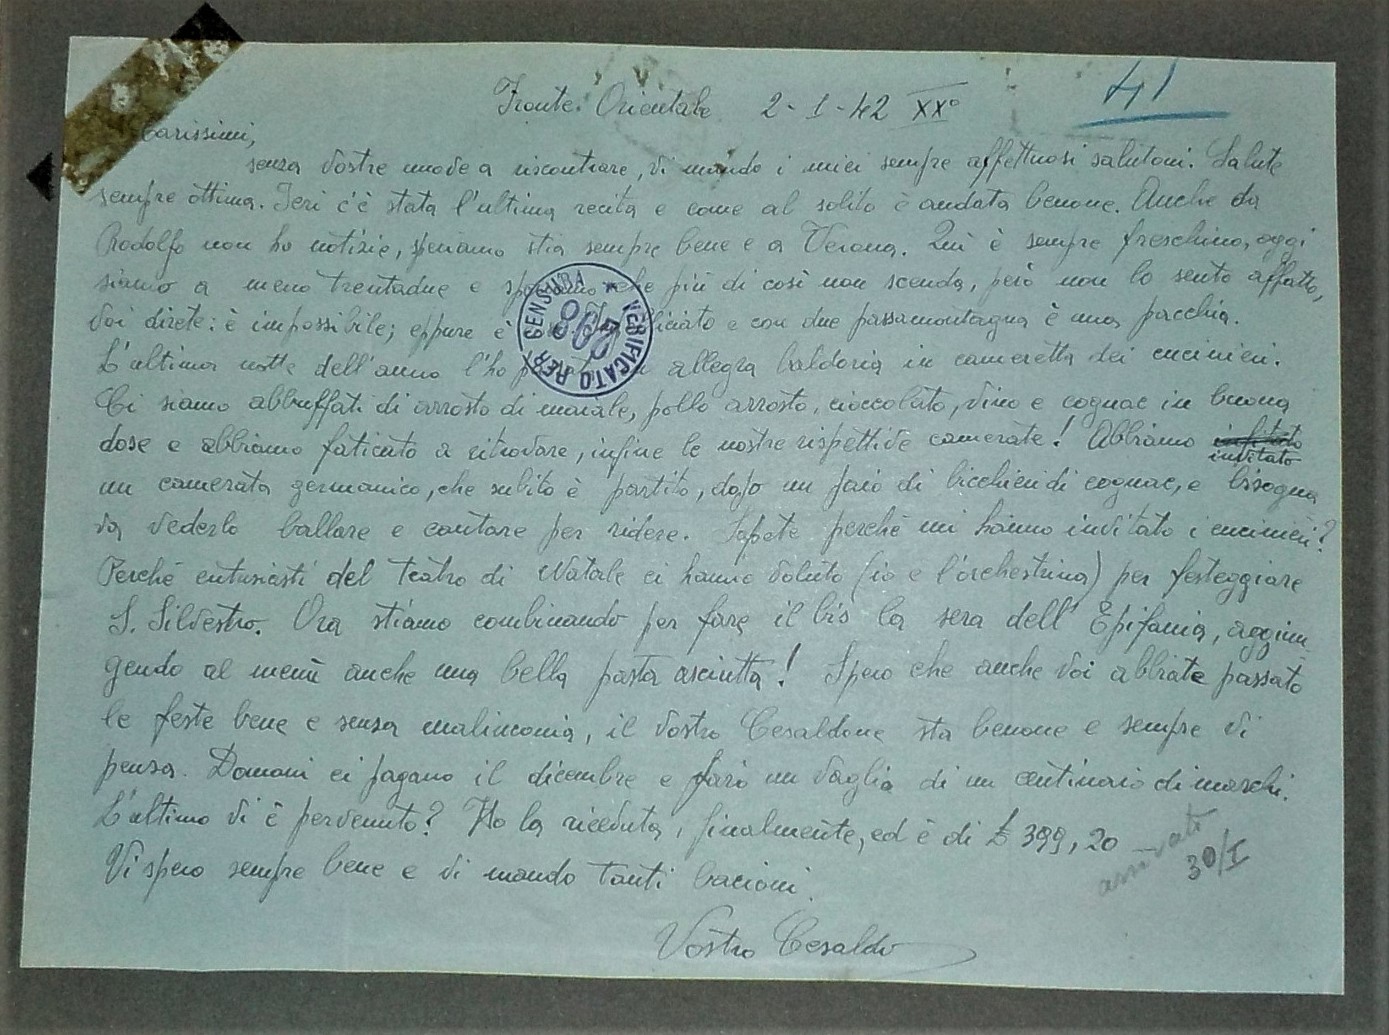 41
Fronte Orientale 2-1-42 XX°
Carissimi,
senza vostre nuove a riscontrare, vi mando i miei sempre affettuosi salutoni. Salute
sempre ottima. Ieri c'è stata l'ultima recita e come al solito è andata benone. Anche da
Rodolfo non ho notizie, speriamo stia sempre bene e a Verona. Qui è sempre freschino, oggi
siamo a meno trentadue e che più di così non scenda, però non lo sento affatto,
voi direte: è impossibile; eppure è e con due passamontagna è una pacchia.
L'ultima notte dell'anno l'ho allegra baldoria in cameretta dei cucinieri.
Ci siamo abbuffati di arrosto di maiale, pollo arrosto, cioccolato, vino e cognac in buona
dose e abbiamo faticato a ritrovare, infine le nostre rispettive camerate! Abbiamo
invitato
un camerata germanico, che subito è partito, dopo un paio di bicchieri di cognac, e bisogna
va vederlo ballare e cantare per ridere. Sapete perché mi hanno invitato i cucinieri?
Perché entusiasti del teatro di Natale ci hanno voluto (io e l'orchestrina) per festeggiare
S. Silvestro. Ora stiamo combinando per fare il bis la sera dell'Epifania, aggiun
gendo al menù anche una bella pasta asciutta! Spero che anche voi abbiate passato
le feste bene e senza malinconia, il vostro Cesaldone sta benone e sempre vi
pensa. Domani ci pagano il dicembre e farò un vaglia di un centinaio di marchi.
L'ultimo vi è pervenuto? Ho la ricevuta, finalmente, ed è di £ 399,20
Vi spero sempre bene e vi mando tanti bacioni.
Vostro Cesaldo
arrivata
30/I
VERIFICATO PER CENSURA